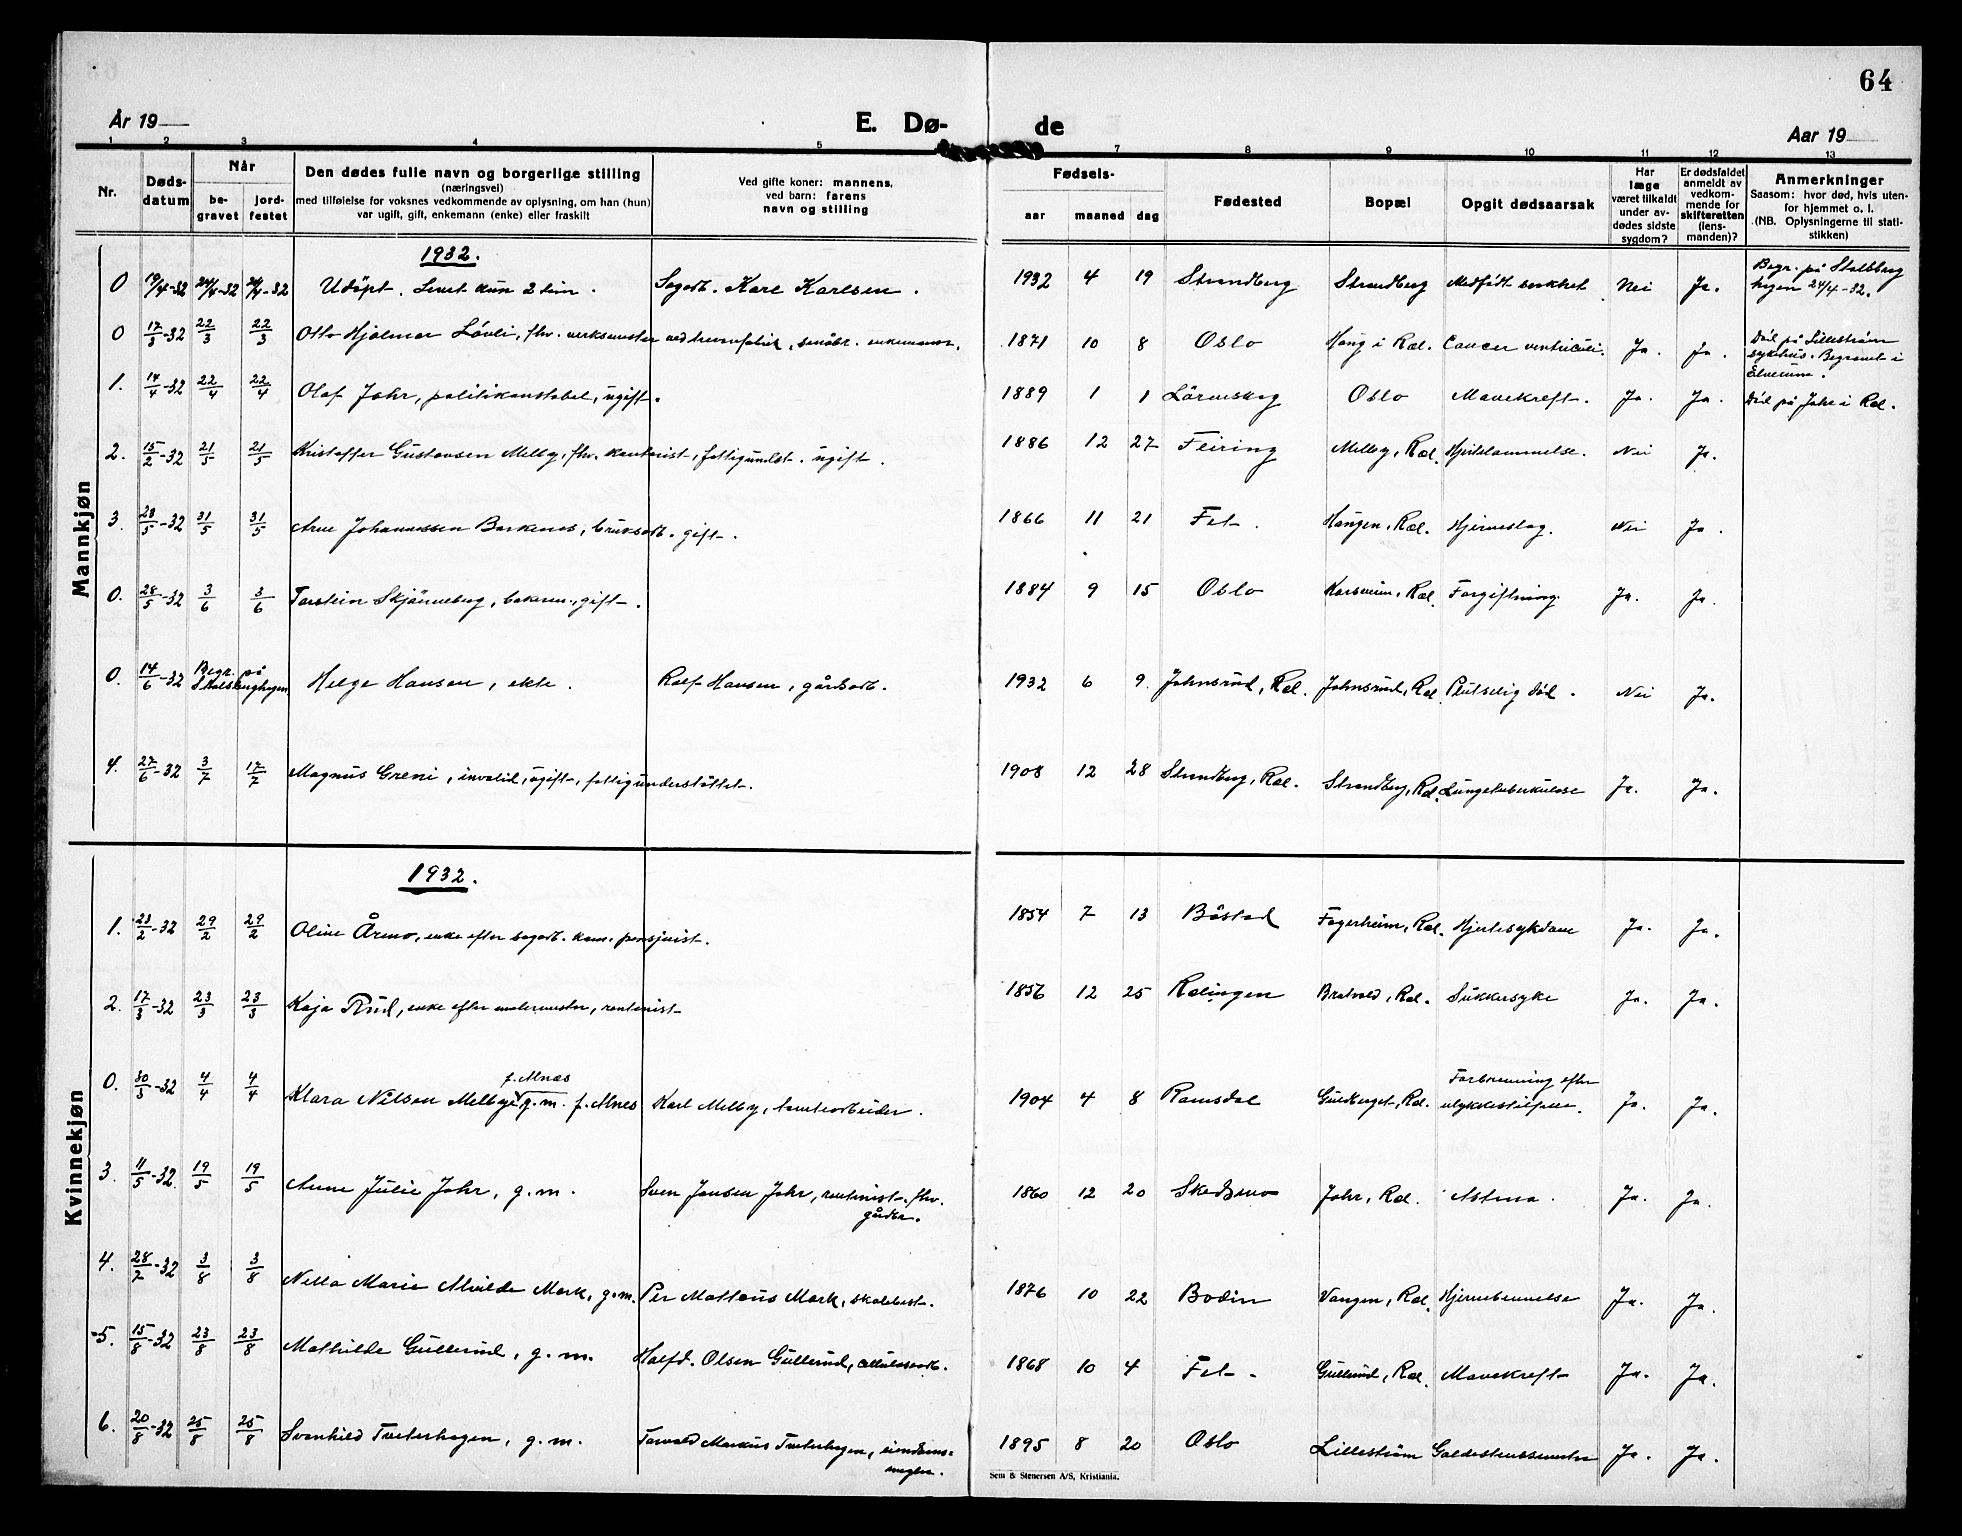 64
År 19
E. Dø-
de
Aar 19
1 2 3 4 5 7 8 9 10 11 12 13
Nr.
Døds-
datum
Når
be-
gravet
jord-
festet
Den dødes fulle navn og borgerlige stilling
(næringsvei)
med tilføielse for voksnes vedkommende av oplysning, om han (hun)
var ugift, gift, enkemann (enke) eller fraskilt
Ved gifte koner: mannens,
ved barn: farens
navn og stilling
Fødsels-
aar maaned dag
Fødested
Bopæl
Opgit dødsaarsak
Har
læge
været tilkaldt
under av-
dødes sidste
sygdom?
Er dødsfaldet
anmeldt av
vedkom-
mende for
skifteretten
(lens-
manden)?
Anmerkninger
Saasom: hvor død, hvis uten-
for hjemmet o. l.
(NB. Oplysningerne til stati-
stikken)
Mannkjøn
1932.
0 19/4-32 24/4-32 24/4-32 Udöpt. Levet kun 2 tim. Sagarb. Karl Karlsen. 1932 4 19 Strandberg Strandberg Medfödt svakhet Nei Ja. Begr. på Stalsberg
hagen 24/4-32.
0 17/3-32 22/3 22/3 Otto Hjalmar Lövli, fhv. verksmester ved trevarefabrik, småbr. enkemann. 1871 10 8 Oslo Haug i Ræl. Cancer ventriculi. Ja. Ja. Död på Lilleström
sykehus. Begravet i
Elverum.
1. 14/4-32 22/4 22/4 Olaf Johr, politikonstabel, ugift. 1889 1 1 Lörenskog Oslo Mavekreft. Ja. Ja. Död på Johr i Ræl.
2. 15/2-32 21/5 21/5 Kristoffer Gustavsen Melby, fhv. kontorist, fattigundst. ugift. 1886 12 27 Feiring Melby, Ræl. Hjertelammelse. Nei Ja.
3. 23/5-32 31/5 31/5 Arne Johannessen Barkenes, bruksarb. gift. 1866 11 21 Fet. Haugen, Ræl. Hjerneslag. Nei Ja.
0. 28/5-32 3/6 3/6 Torstein Skjönneberg, bakerm., gift. 1884 9 15 Oslo Korsveien, Ræl. Forgiftning. Ja. Ja.
0. 14/6-32 Begr. på
Stalsberghagen Helge Hansen, ekte. Rolf Hansen, gårdsarb. 1932 6 9 Johnsrud, Ræl. Johnsrud, Ræl. Plutselig död. Nei Ja.
4. 27/6-32 3/7 17/7 Magnus Greni, invalid, ugift, fattigunderstöttet. 1908 12 28 Strandberg, Ræl. Strandberg, Ræl. Lungetuberkulose Ja. Ja.
Kvinnekjøn
1932.
1. 23/2-32 29/2 29/2 Oline Årmo, enke efter sagarb. kom. pensjonist. 1854 7 13 Båstad Fagerheim, Ræl. Hjertesykdom Ja. Ja.
2. 17/3-32 23/3 23/3 Kaja Rud, enke efter malermester, rentenist 1856 12 25 Rælingen Bratvold, Ræl. Sukkersyke Ja. Ja.
0. 30/3-32 4/4 4/4 Klara Nilsen Melby f. Alnæs g.m. f. Alnes Karl Melby, tomtearbeider. 1904 4 8 Romsdal Guldberget, Ræl. Forbrenning efter
ulykkestilfelle. Ja. Ja.
3. 11/5-32 19/5 19/5 Anne Julie Johr, g.m. Sven Jensen Johr, rentenist. fhv.
gårdbr. 1860 12 20 Skedsmo Johr, Ræl. Astma. Ja. Ja.
4. 28/7-32 3/8 3/8 Nella Marie Alvilde Mork, g.m. Per Matteus Mork, skolebest. 1876 10 22 Bodin Vangen, Ræl. Hjernebetennelse Ja. Ja.
5. 15/8-32 23/8 23/8 Mathilde Gullerud, g.m. Halfd. Olsen Gullerud, cellulosearb. 1868 10 4 Fet. Gullerud, Ræl. Mavekreft Ja. Ja.
6. 20/8-32 25/8 25/8 Svanhild Tveterhagen, g.m. Torvald Markus Tveterhagen, eiendoms-
megler. 1895 8 20 Oslo Lilleström Galdestenssmerter Ja. Ja.
Sem & Stenersen A/S, Kristiania.